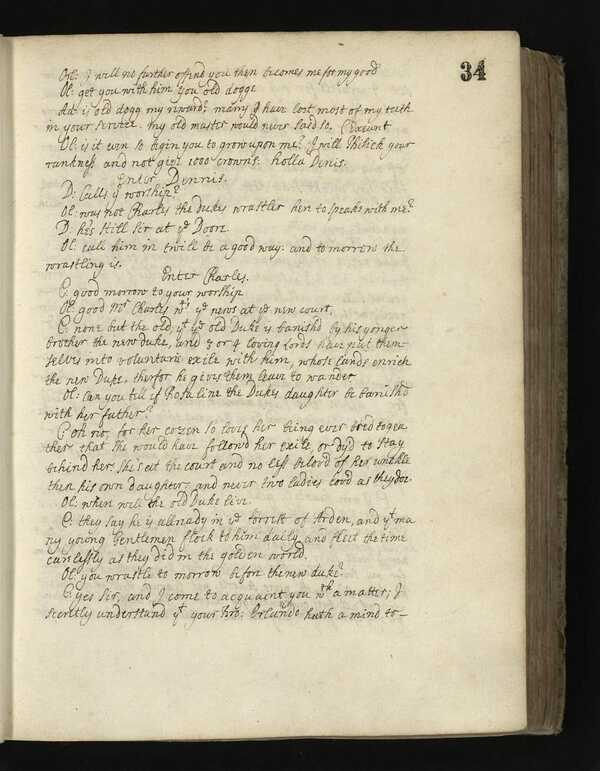 34
Orl: I will no further ofend you then becomes me for my good
Ol: get you with him you old dogge
Ad: is old dogg my reward? marry I have lost most of my teeth
in your service. my old master would never said so. Exeunt
Ol: is it even so begin you to grow upon me? I will Phisick your
ranknesse and not give 1000 crowns. holla Denis.
Enter Dennis.
D: Calls yr worship?
Ol: was not Charles the dukes wrastler here to speake with me?
D: hee's still Sir at ye Doore
Ol: call him in twill be a good way: and to morrow the
wrastling is.
Enter Charles.
C: good morrow to your worship
Ol: good Mr Charles wt's ye news at ye new court.
C: none but the old, yt ye old Duke is banish'd by his yonger
brother the new duke, and 3 or 4 loving Lords have put them-
selves into voluntarie exile with him, whose lands enrich
the new Duke, therfor he gives them leave to wander
Ol: Can you tell if Rosaline the Dukes daughter be banish'd
with her father?
C: Oh no, for her cozen so loves her being ever bred togea
ther, that she would have follow'd her exile, or dy'd to stay
behind her, she's at the court and no less belov'd of her unckle
then his own daughter, and never two ladies lov'd as they doe
Ol: where will the old Duke live.
C: they say he is allready in ye forrest of Arden, and yt ma
ny young Gentlemen flock to him daily, and fleet the time
carelessly as they did in the golden world.
Ol: you wrastle to morrow before the new duke?
C: yes Sir, and I come to acquaint you wth a matter; I
secretly understand yt your bro: Orlando hath a mind to-